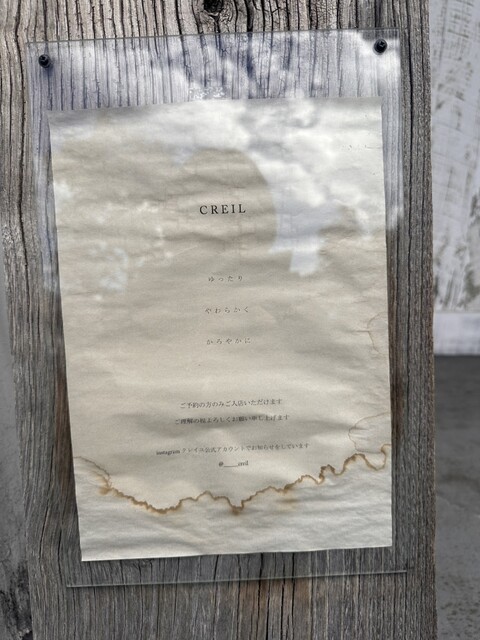 CREIL
ゆったり
やわらかく
かろやかに
ご予約の方のみご入店いただけます
ご理解の程よろしくお願い申し上げます
instagram クレイス公式アカウントでお知らせをしています